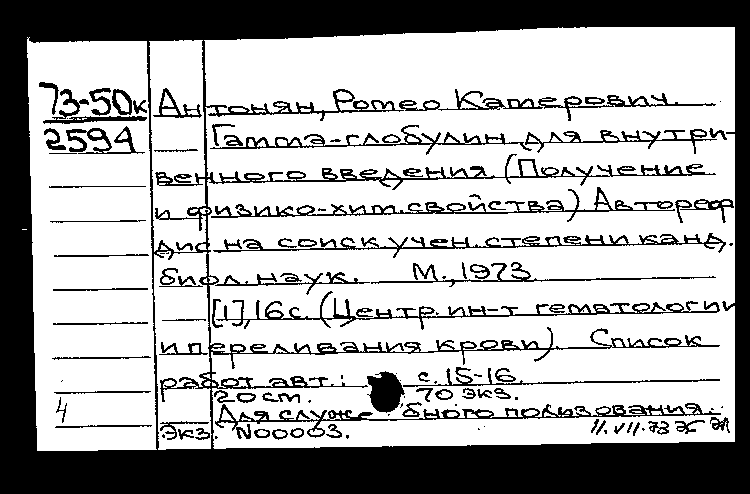 73-50к
2594
Антонян, Ромео Катерович.
Гамма-глобулин для внутри-
венного введения. (Получение
и физико-хим. свойства) Автореф
дис на соиск учен. степени канд.
биол. наук. М., 1973
[1], 16 с. (Центр. ин-т гематологии
и переливания крови). Список
работ авт.: с. 15-16.
20 см. 70 экз.
Для служебного пользования.
4
Экз. N00003.
11.VII.73